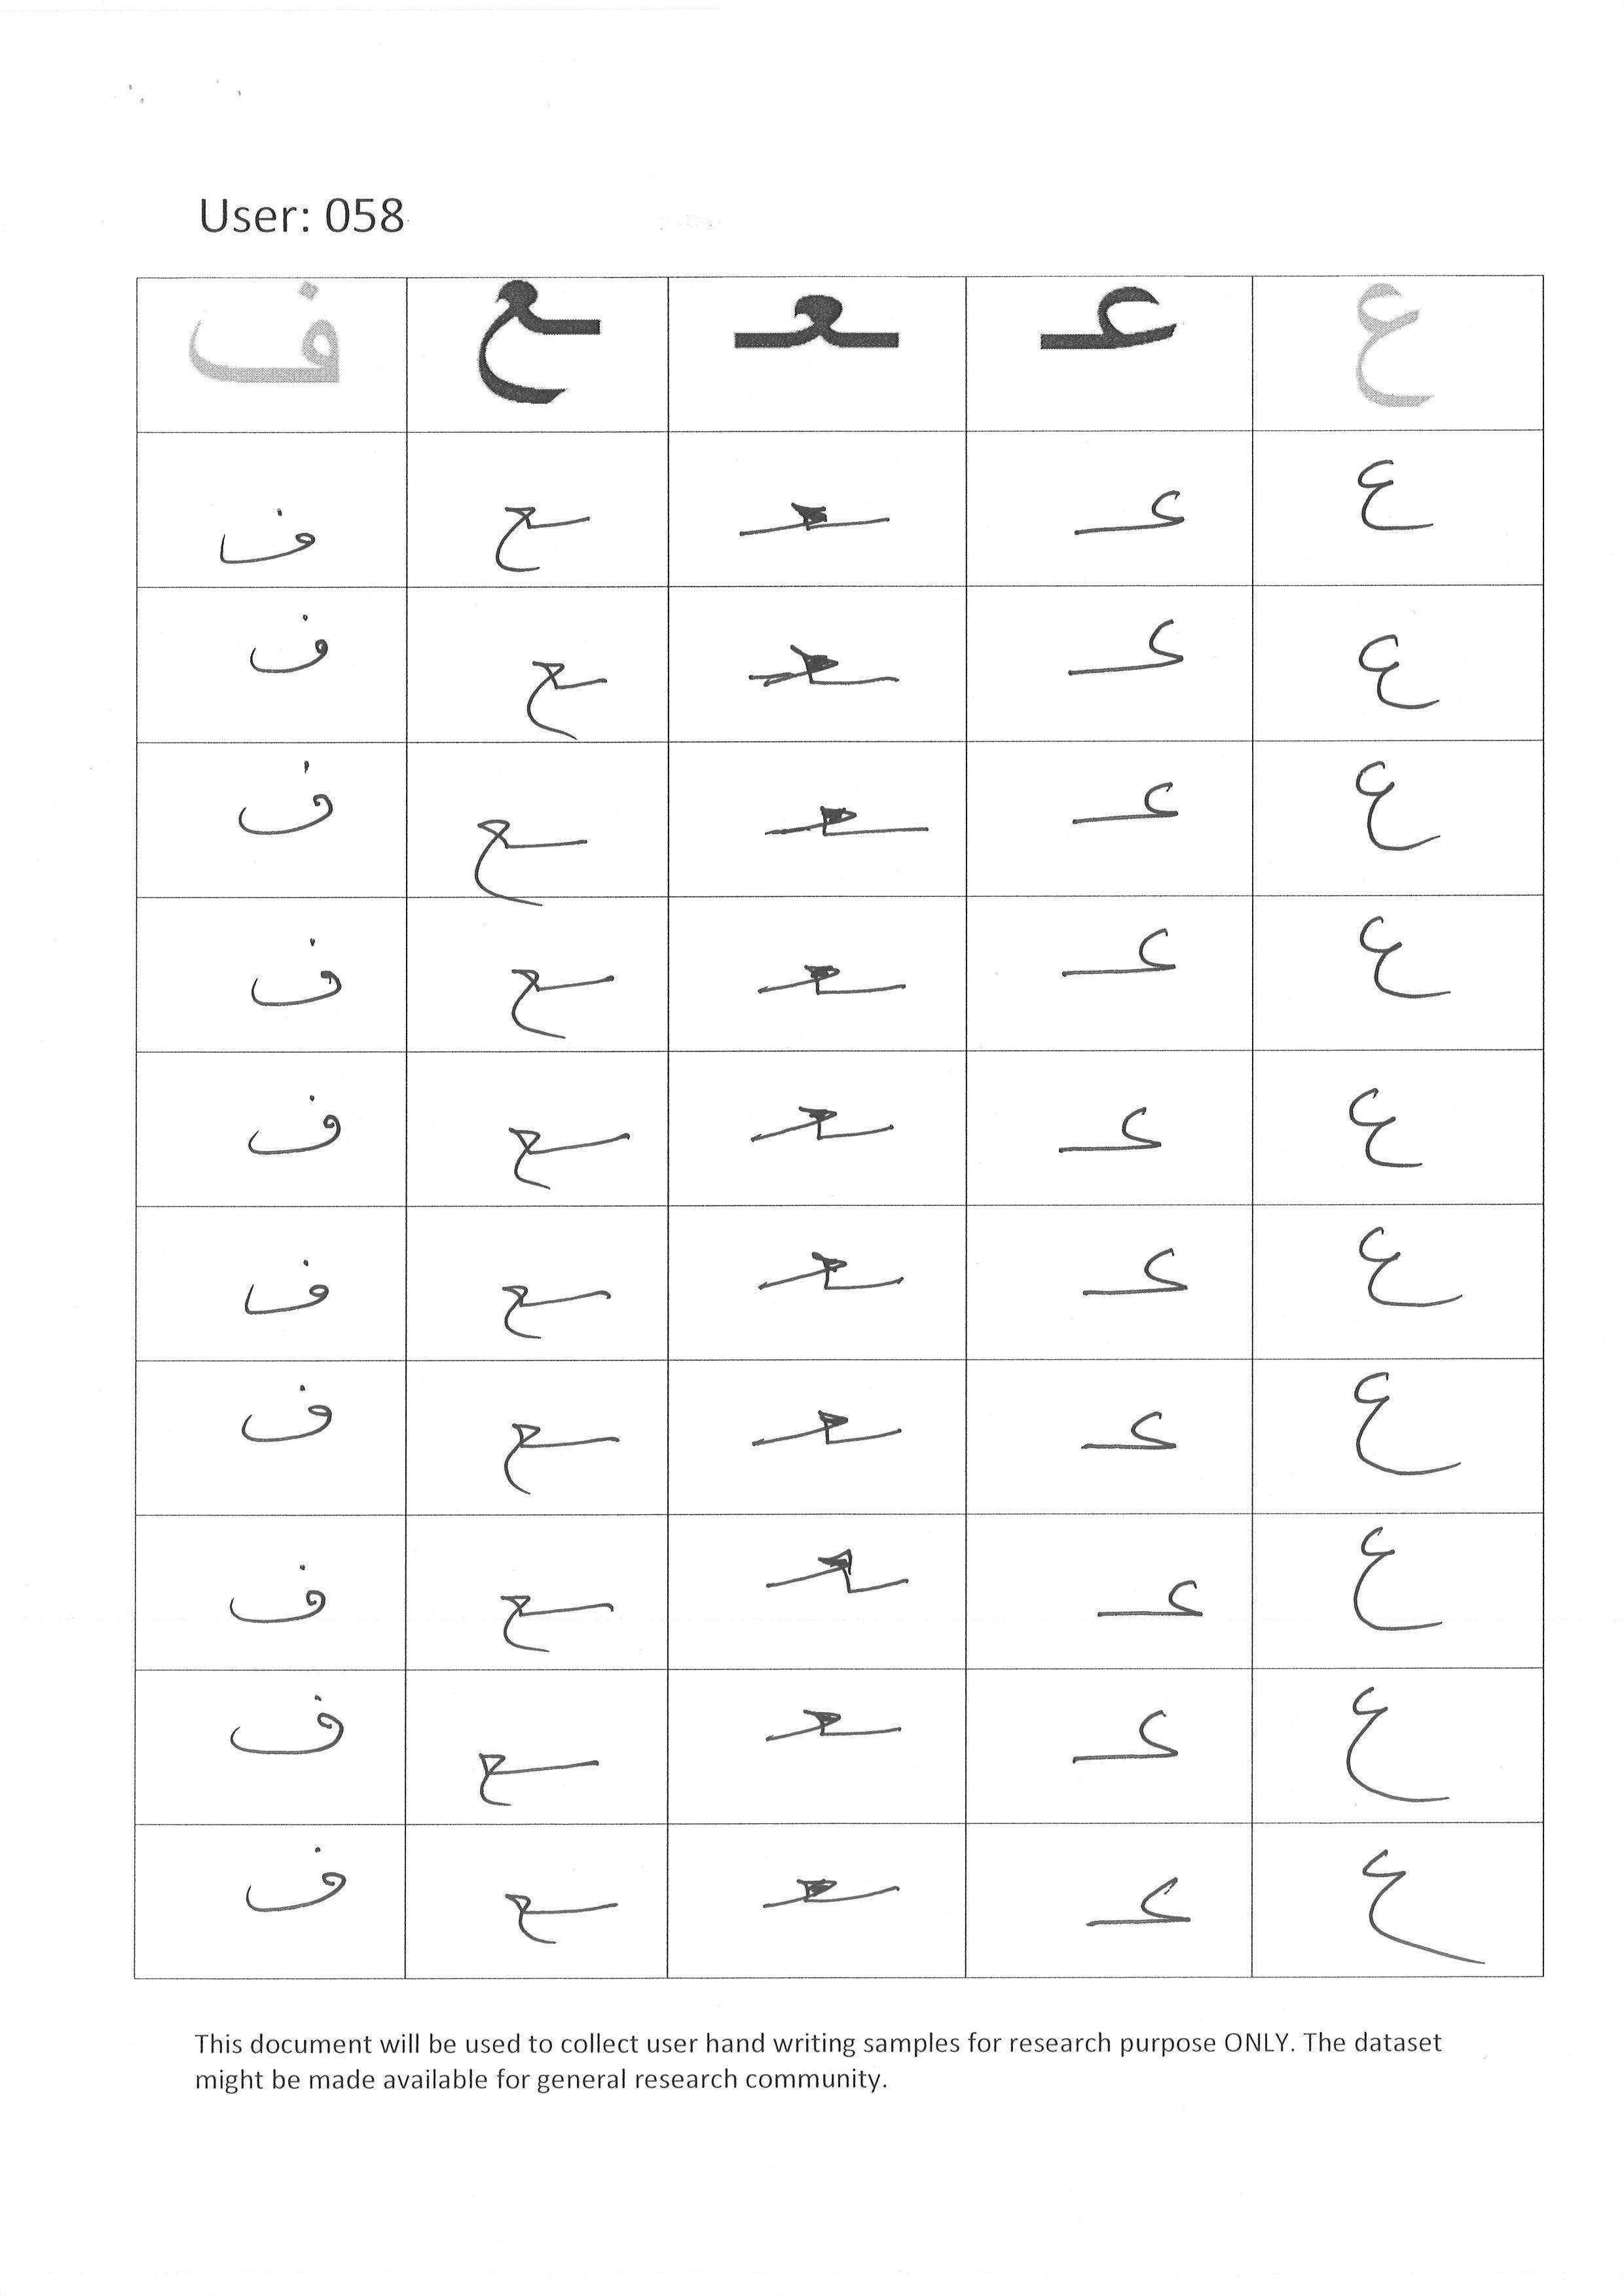 User: 058
ع عـ ـعـ ـع ف
ع عـ ـعـ ـع ف
ع عـ ـعـ ـع ف
ع عـ ـعـ ـع ف
ع عـ ـعـ ـع ف
ع عـ ـعـ ـع ف
ع عـ ـعـ ـع ف
ع عـ ـعـ ـع ف
ع عـ ـعـ ـع ف
ع عـ ـعـ ـع ف
ع عـ ـعـ ـع ف
This document will be used to collect user hand writing samples for research purpose ONLY. The dataset
might be made available for general research community.